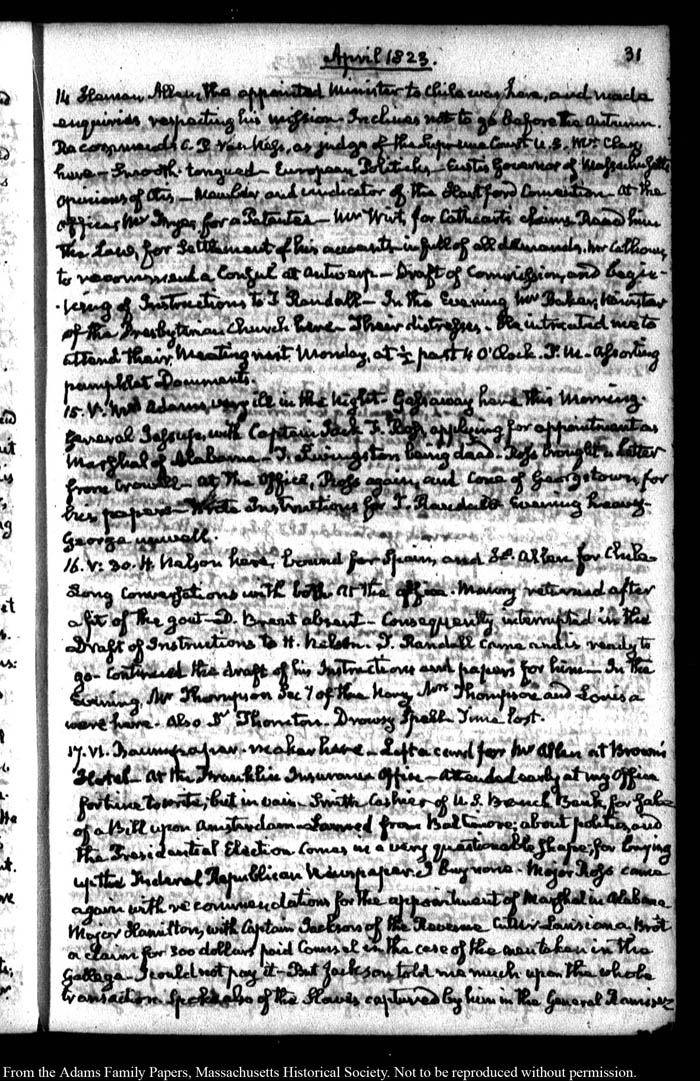 April 1823. 31
14 Heman Allen, the appointed Minister to Chile was here, and made
enquiries respecting his mission. Inclines not to go before the Autumn.
Recommends C. P. Van Ness, as judge of the Supreme Court U.S. Mr Clay
here — Smooth-tongued — European Politicks — Eustis Governor of Massachusetts
opinions of Otis — and vindicator of the Hartford Convention — At the
office, Mr for a Patentee — Mr Wirt, for Cathcart's claim. Read him
the Law, for Settlement of his accounts in full of all demands. Mr Calhoun,
to recommend a Consul at Antwerp — Draft of Commission, and begin-
-ning of Instructions to T. Randall — In the Evening Mr Baker, Minister
of the Presbyterian Church here. Their distresses. He intreated me to
attend their Meeting next Monday, at ½ past 4 O'Clock. P.M. Assorting
pamphlet Documents.
15. V. Mrs Adams, very ill in the Night. Gassaway here this Morning.
General Jessup, with Captain Jack F. Ross applying for appointment as
Marshal of Alabama — T. Livingston being dead. Ross brought a Letter
from Crowell — At the Office, Ross again, and Cone of Georgetown, for
his papers — Wrote Instructions for T. Randall. Evening heavy.
George unwell.
16. V: 30. H. Nelson here, bound for Spain, and H. Allen for Chile
Long Conversations with both at the office. Maury returned after
a fit of the gout — D. Brent absent — Consequently interrupted in the
Draft of Instructions to H. Nelson. T. Randall came and is ready to
go. Continued the draft of his Instructions and papers for him — In the
Evening, Mr Thompson Secy of the Navy, Mrs Thompson and Louisa
were here. Also Dr Thornton. Drowsy Spell. Time lost.
17. VI. paper-maker here — Left a card for Mr Allen at Brown's
Hotel — At the Franklin Insurance Office — Attended early at my Office
for time to write; but in vain. Smith Cashier of U.S. Branch Bank, for Sale
of a Bill upon Amsterdam — Larned from Baltimore; about politics, and
the Presidential Election. Comes in a very questionable shape; for buying
up the Federal Republican Newspaper. I buy none. Major Ross came
again with recommendations for the appointment of Marshal in Alabama
Major Hamilton, with Captain Jackson of the Revenue Cutter Louisiana. Brot
a claim for 300 dollars paid Counsel in the case of the men taken in the
Gallega. I could not pay it — But Jackson told me much upon the whole
transaction. Spoke also of the Slaves captured by him in the General Ramirez